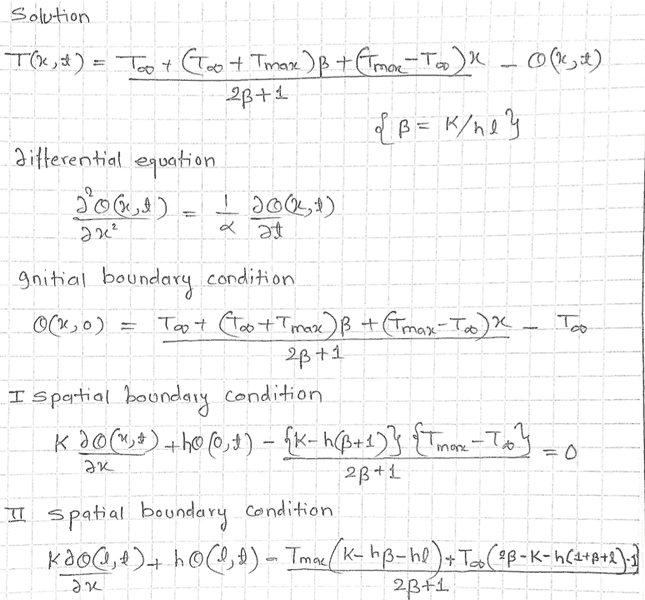 Solution
T(x,t) = T∞ + (T∞ + Tmax)β + (Tmax - T∞)x / 2β+1 - Θ(x,t)
{β = K/hl}
differential equation
∂²Θ(x,t)/∂x² = 1/α ∂Θ(x,t)/∂t
Initial boundary condition
Θ(x,0) = T∞ + (T∞ + Tmax)β + (Tmax - T∞)x / 2β+1 - T∞
I spatial boundary condition
K ∂Θ(x,t)/∂x + hΘ(0,t) - {K - h(β+1)} {Tmax - T∞} / 2β+1 = 0
II spatial boundary condition
K ∂Θ(l,t)/∂x + hΘ(l,t) - Tmax(K - hβ - hl) + T∞(2β - K - h(1+β+l) - 1} / 2β+1